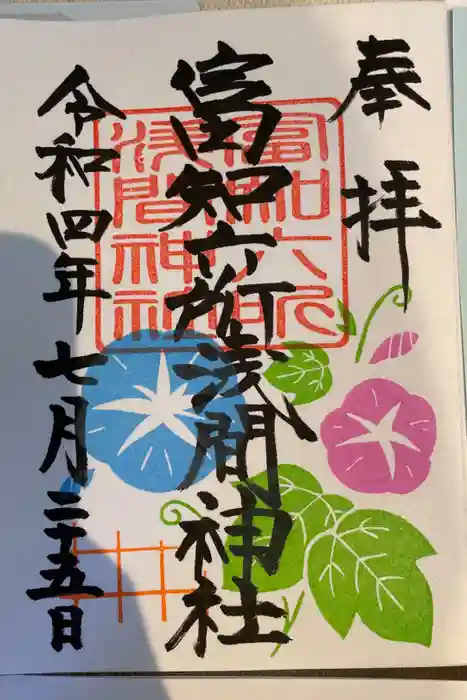 奉拝
富知六所浅間神社
富知六所
浅間神社
令和四年七月二十五日